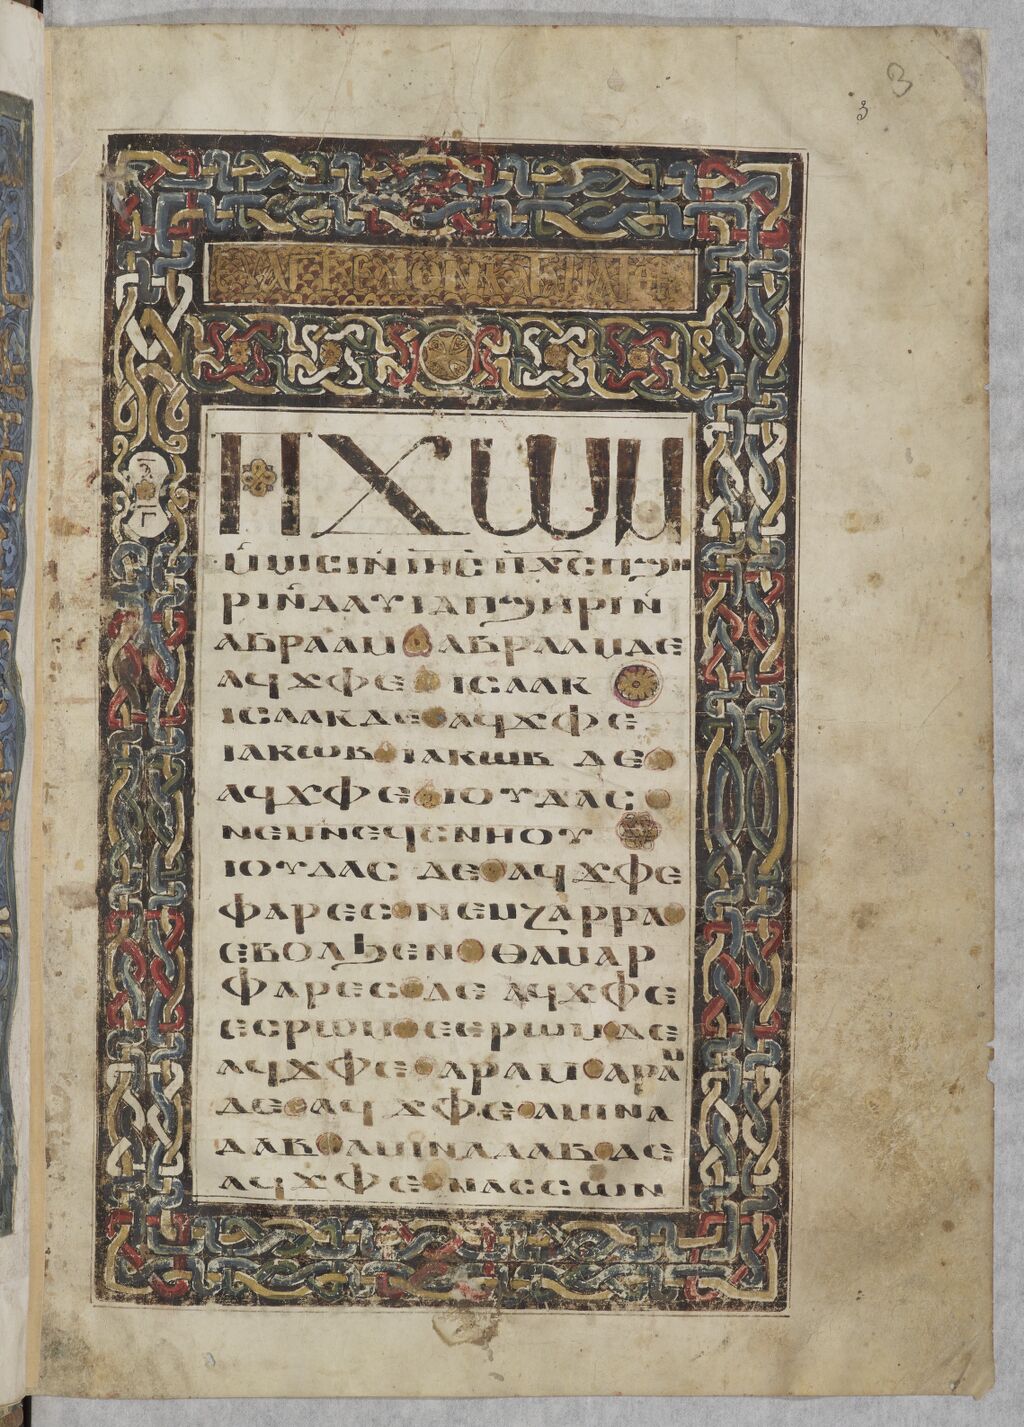 3
3
ⲠϪⲰⲘ
ⲘⲘⲒⲤⲒ ⲚⲒⲎⲤ ⲠⲬⲤ ⲠϢⲎ
ⲢⲒ ⲚⲆⲀⲨⲒⲆ ⲠϢⲎⲢⲒ Ⲛ
ⲀⲂⲢⲀⲀⲘ ⲀⲂⲢⲀⲀⲘ ⲆⲈ
ⲀϤϪⲪⲈ ⲒⲤⲀⲀⲔ
ⲒⲤⲀⲀⲔ ⲆⲈ ⲀϤϪⲪⲈ
ⲒⲀⲔⲰⲂ ⲒⲀⲔⲰⲂ ⲆⲈ
ⲀϤϪⲪⲈ ⲒⲞⲨⲆⲀⲤ
ⲚⲈⲘ ⲚⲈϤⲤⲚⲎⲞⲨ
ⲒⲞⲨⲆⲀⲤ ⲆⲈ ⲀϤϪⲪⲈ
ⲪⲀⲢⲈⲤ ⲚⲈⲘ ⲌⲀⲢⲢⲀ
ⲈⲂⲞⲖϦⲈⲚ ⲐⲀⲘⲀⲢ
ⲪⲀⲢⲈⲤ ⲆⲈ ⲀϤϪⲪⲈ
ⲈⲤⲢⲰⲘ ⲈⲤⲢⲰⲘ ⲆⲈ
ⲀϤϪⲪⲈ ⲀⲢⲀⲘ ⲀⲢⲀⲘ
ⲆⲈ ⲀϤϪⲪⲈ ⲀⲘⲒⲚⲀ
ⲆⲀⲂ ⲀⲘⲒⲚⲀⲆⲀⲂ ⲆⲈ
ⲀϤϪⲪⲈ ⲚⲀⲤⲤⲰⲚ